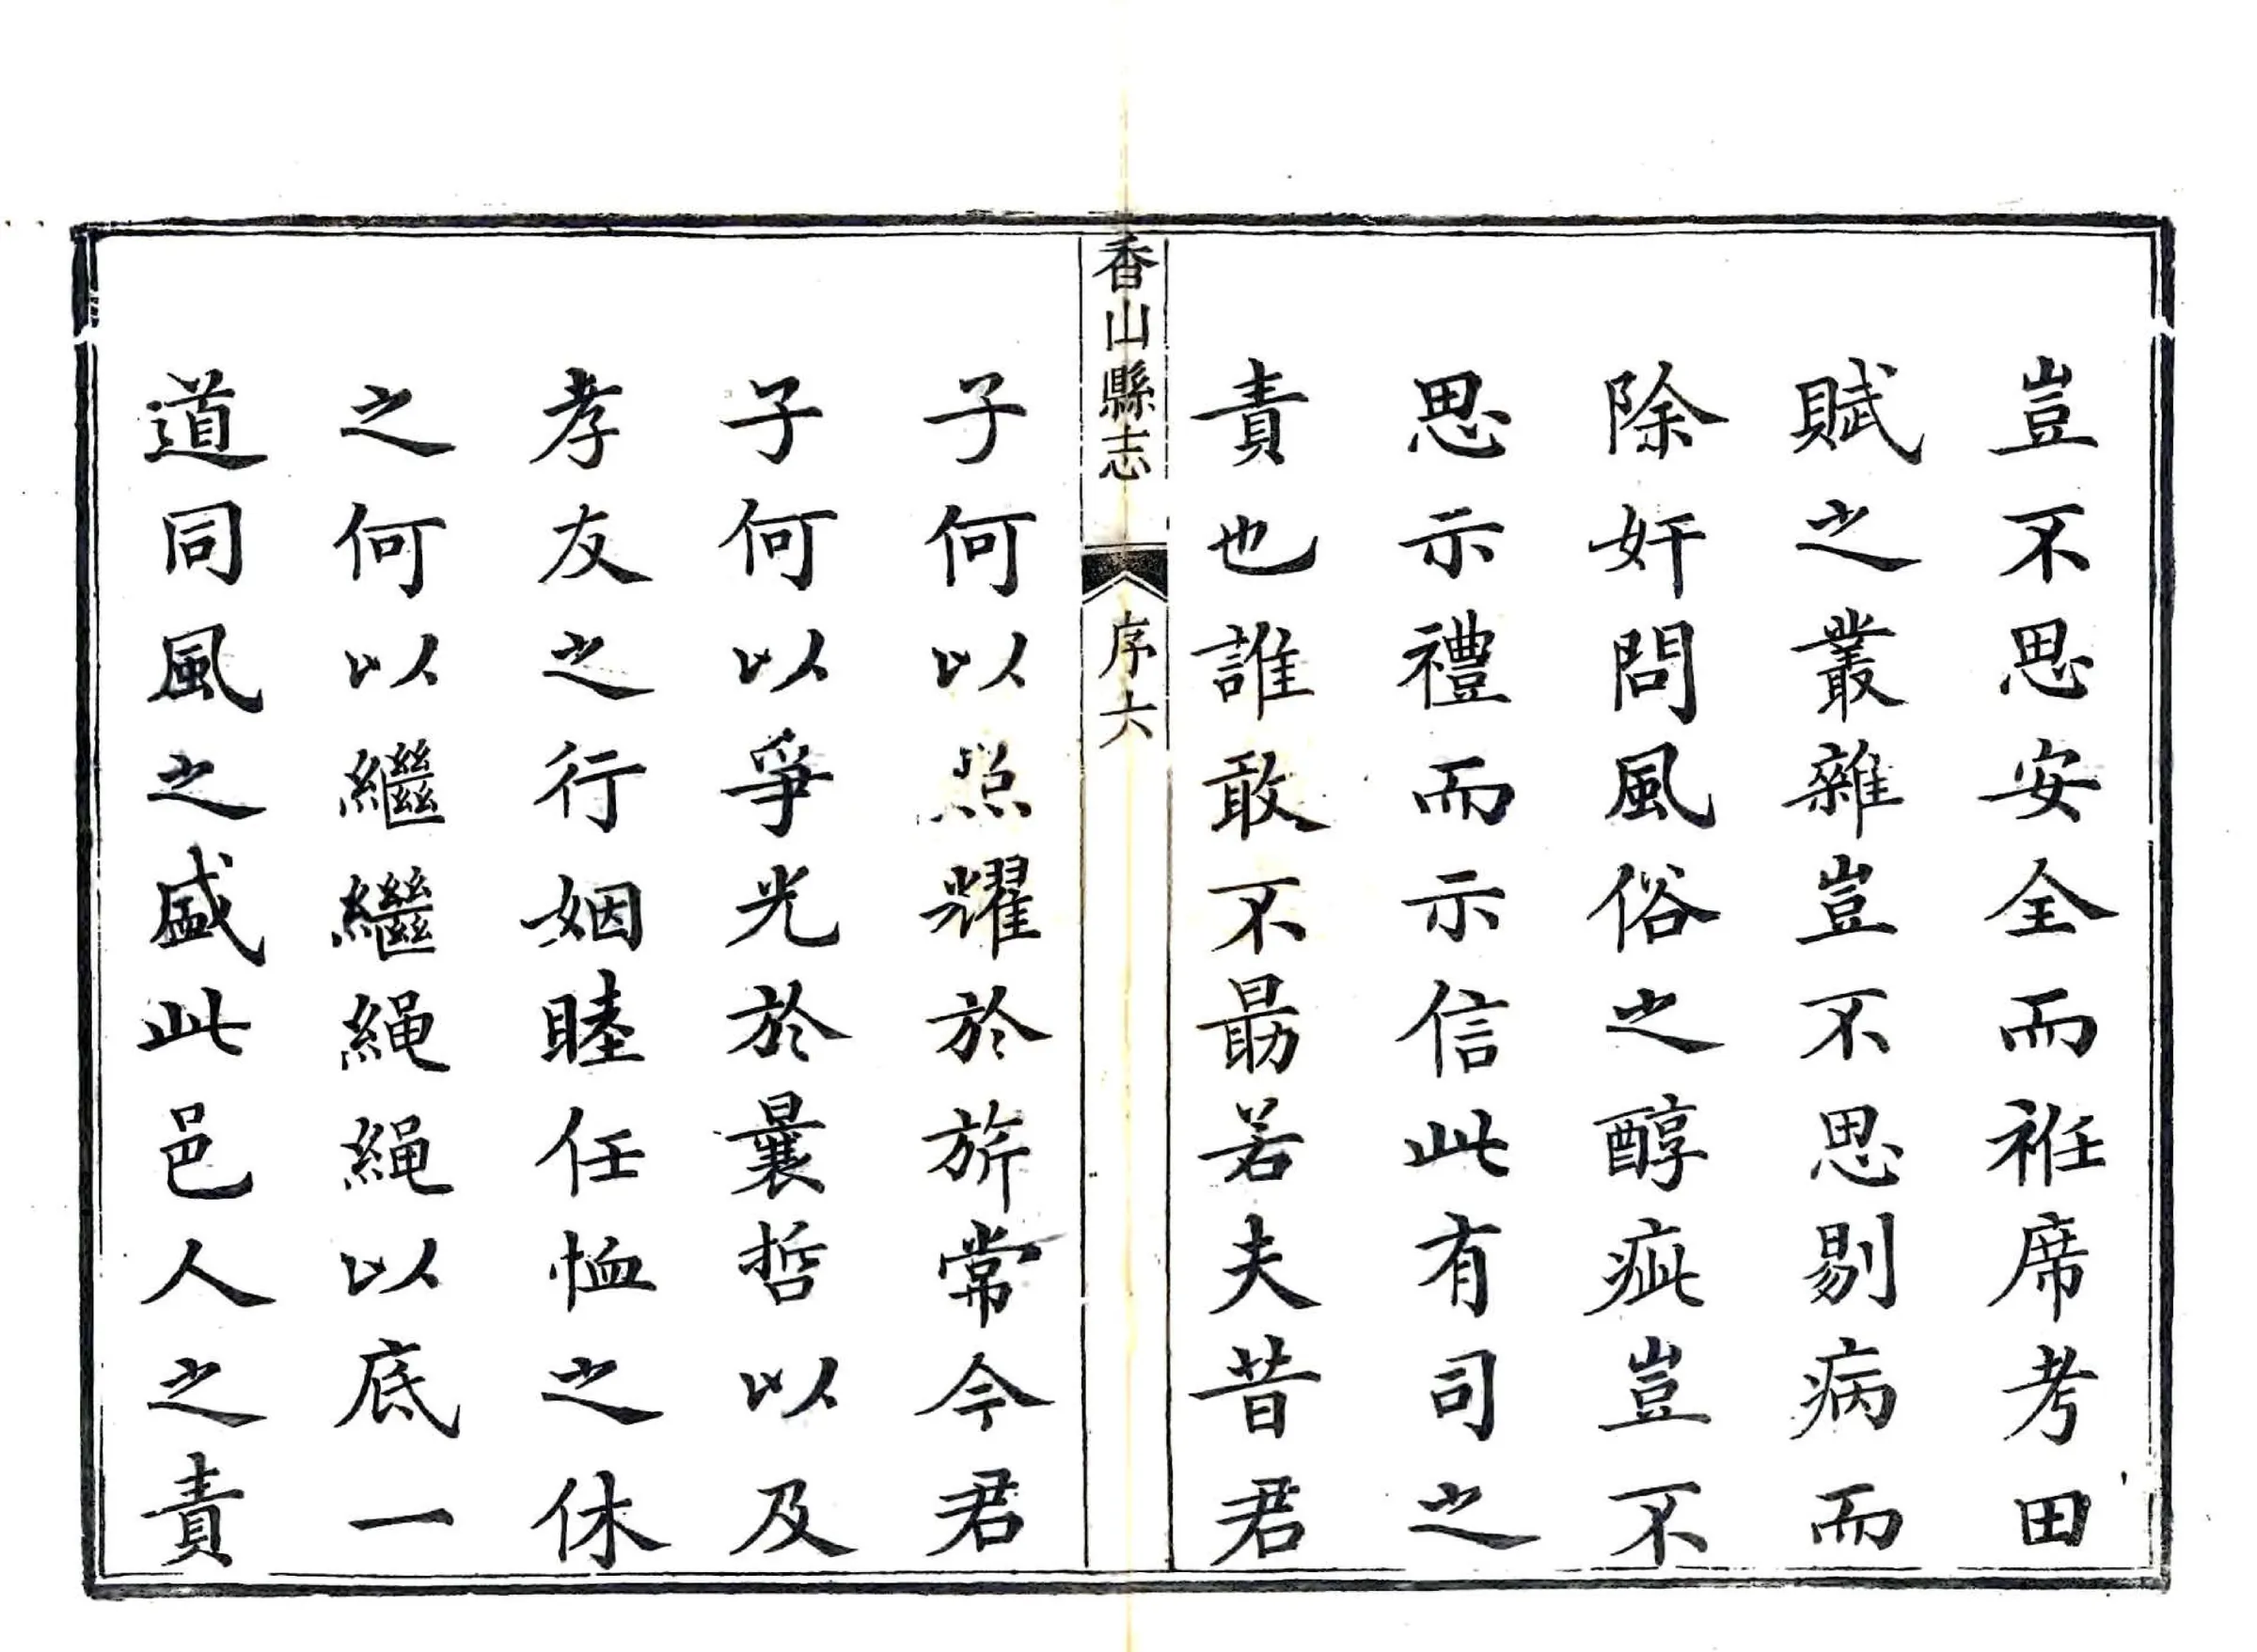 豈不思安全而袵席考田
賦之叢雜豈不思剔病而
除奸問風俗之醇疵豈不
思示禮而示信此有司之
責也誰敢不勗若夫昔君
香山縣志 序 六
子何以照耀於旂常今君
子何以爭光於曩哲以及
孝友之行姻睦任恤之休
之何以繼繼繩繩以底一
道同風之盛此邑人之責